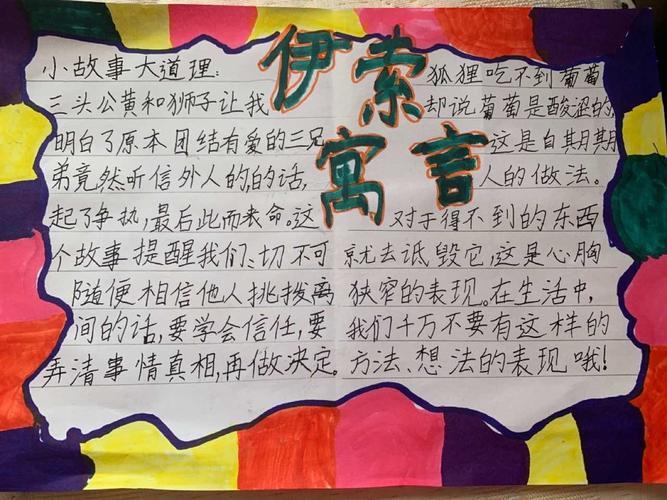 伊索
寓言
小故事大道理:
三头公黄和狮子让我
明白了原本团结有爱的三兄
弟竟然听信外人的,的话,
起了争执,最后此而来命。这
个故事提醒我们、切不可
随便相信他人挑拨离
间的话,要学会信任,要
弄清事情真相,再做决定。
狐狸吃不到葡萄
却说葡萄是酸涩的,
这是自期期
人的做法。
对于得不到的东西
就去诋毁它,这是心胸
狭窄的表现。在生活中,
我们千万不要有这样的
方法、想法的表现哦!